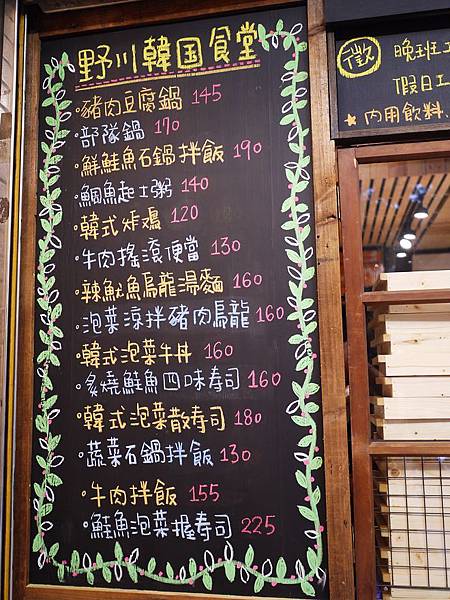 野川韓国食堂
・豬肉豆腐鍋 145
・部隊鍋 170
・鮮鮭魚石鍋拌飯 190
・鯛魚起士粥 140
・韓式炸雞 120
・牛肉搖滾便當 130
・辣魷魚烏龍湯麵 160
・泡菜涼拌豬肉烏龍 160
・韓式泡菜牛丼 160
・炙燒鮭魚四味壽司 160
・韓式泡菜散壽司 180
・蔬菜石鍋拌飯 130
・牛肉拌飯 155
・鮭魚泡菜握壽司 225
徵 晚班工
假日工
★內用飲料、